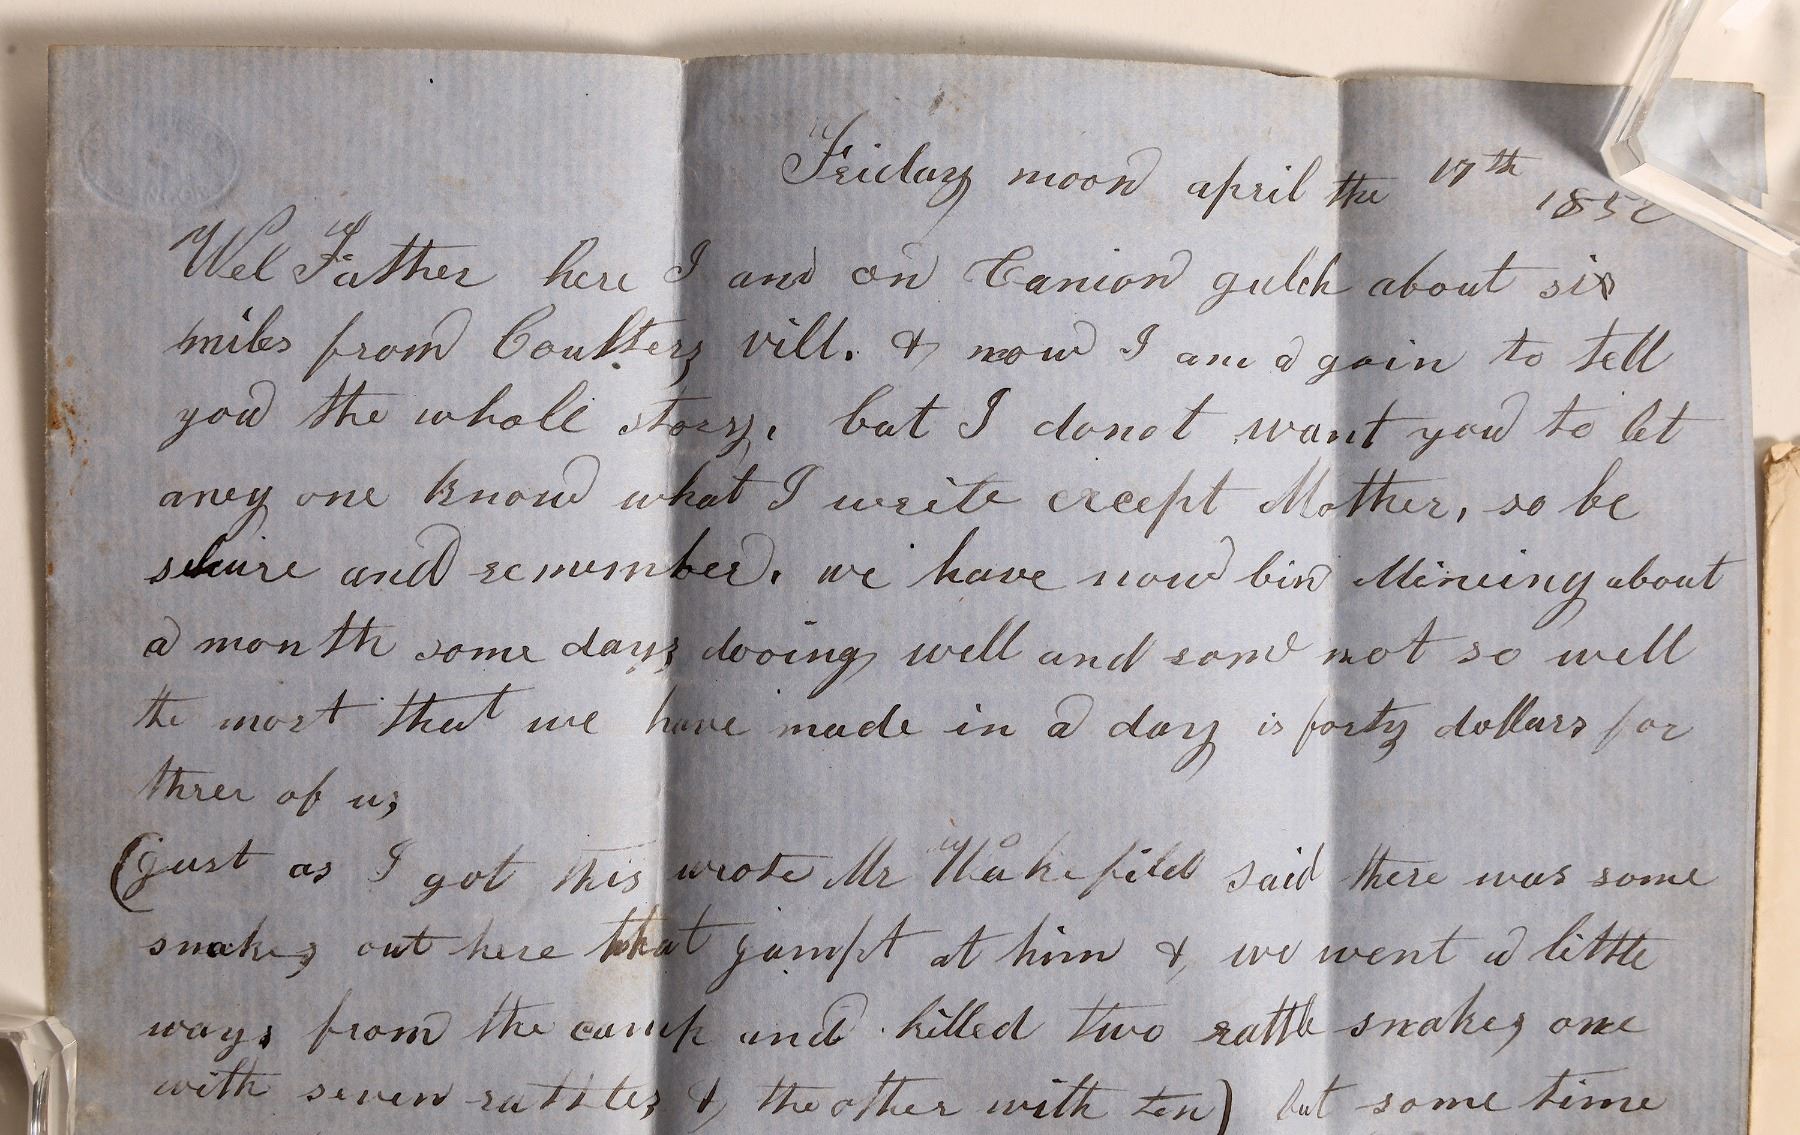 Friday moon april the 17th
1852
Wel Father here I am on Canion gulch about six
miles from Coulters vill. & now I am a goin to tell
you the whole story. but I donot want you to let
aney one know what I write except Mother, so be
shure and remember. we have now bin Mineing about
a month some days dooing well and some not so well
the most that we have made in a day is forty dollars for
three of us
(just as I got this wrote Mr Wakefild said there was some
snakes out here that jumpt at him & we went a little
ways from the camp and killed two rattle snakes one
with seven rattles & the other with ten) but some time